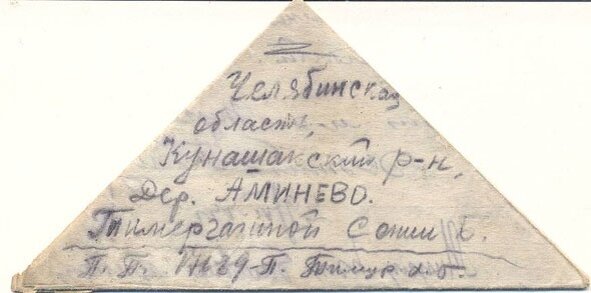 Челябинская
область,
Кунашакский р-н,
Дер. АМИНЕВО.
Тимергалиной С Х.
П. П. -П.